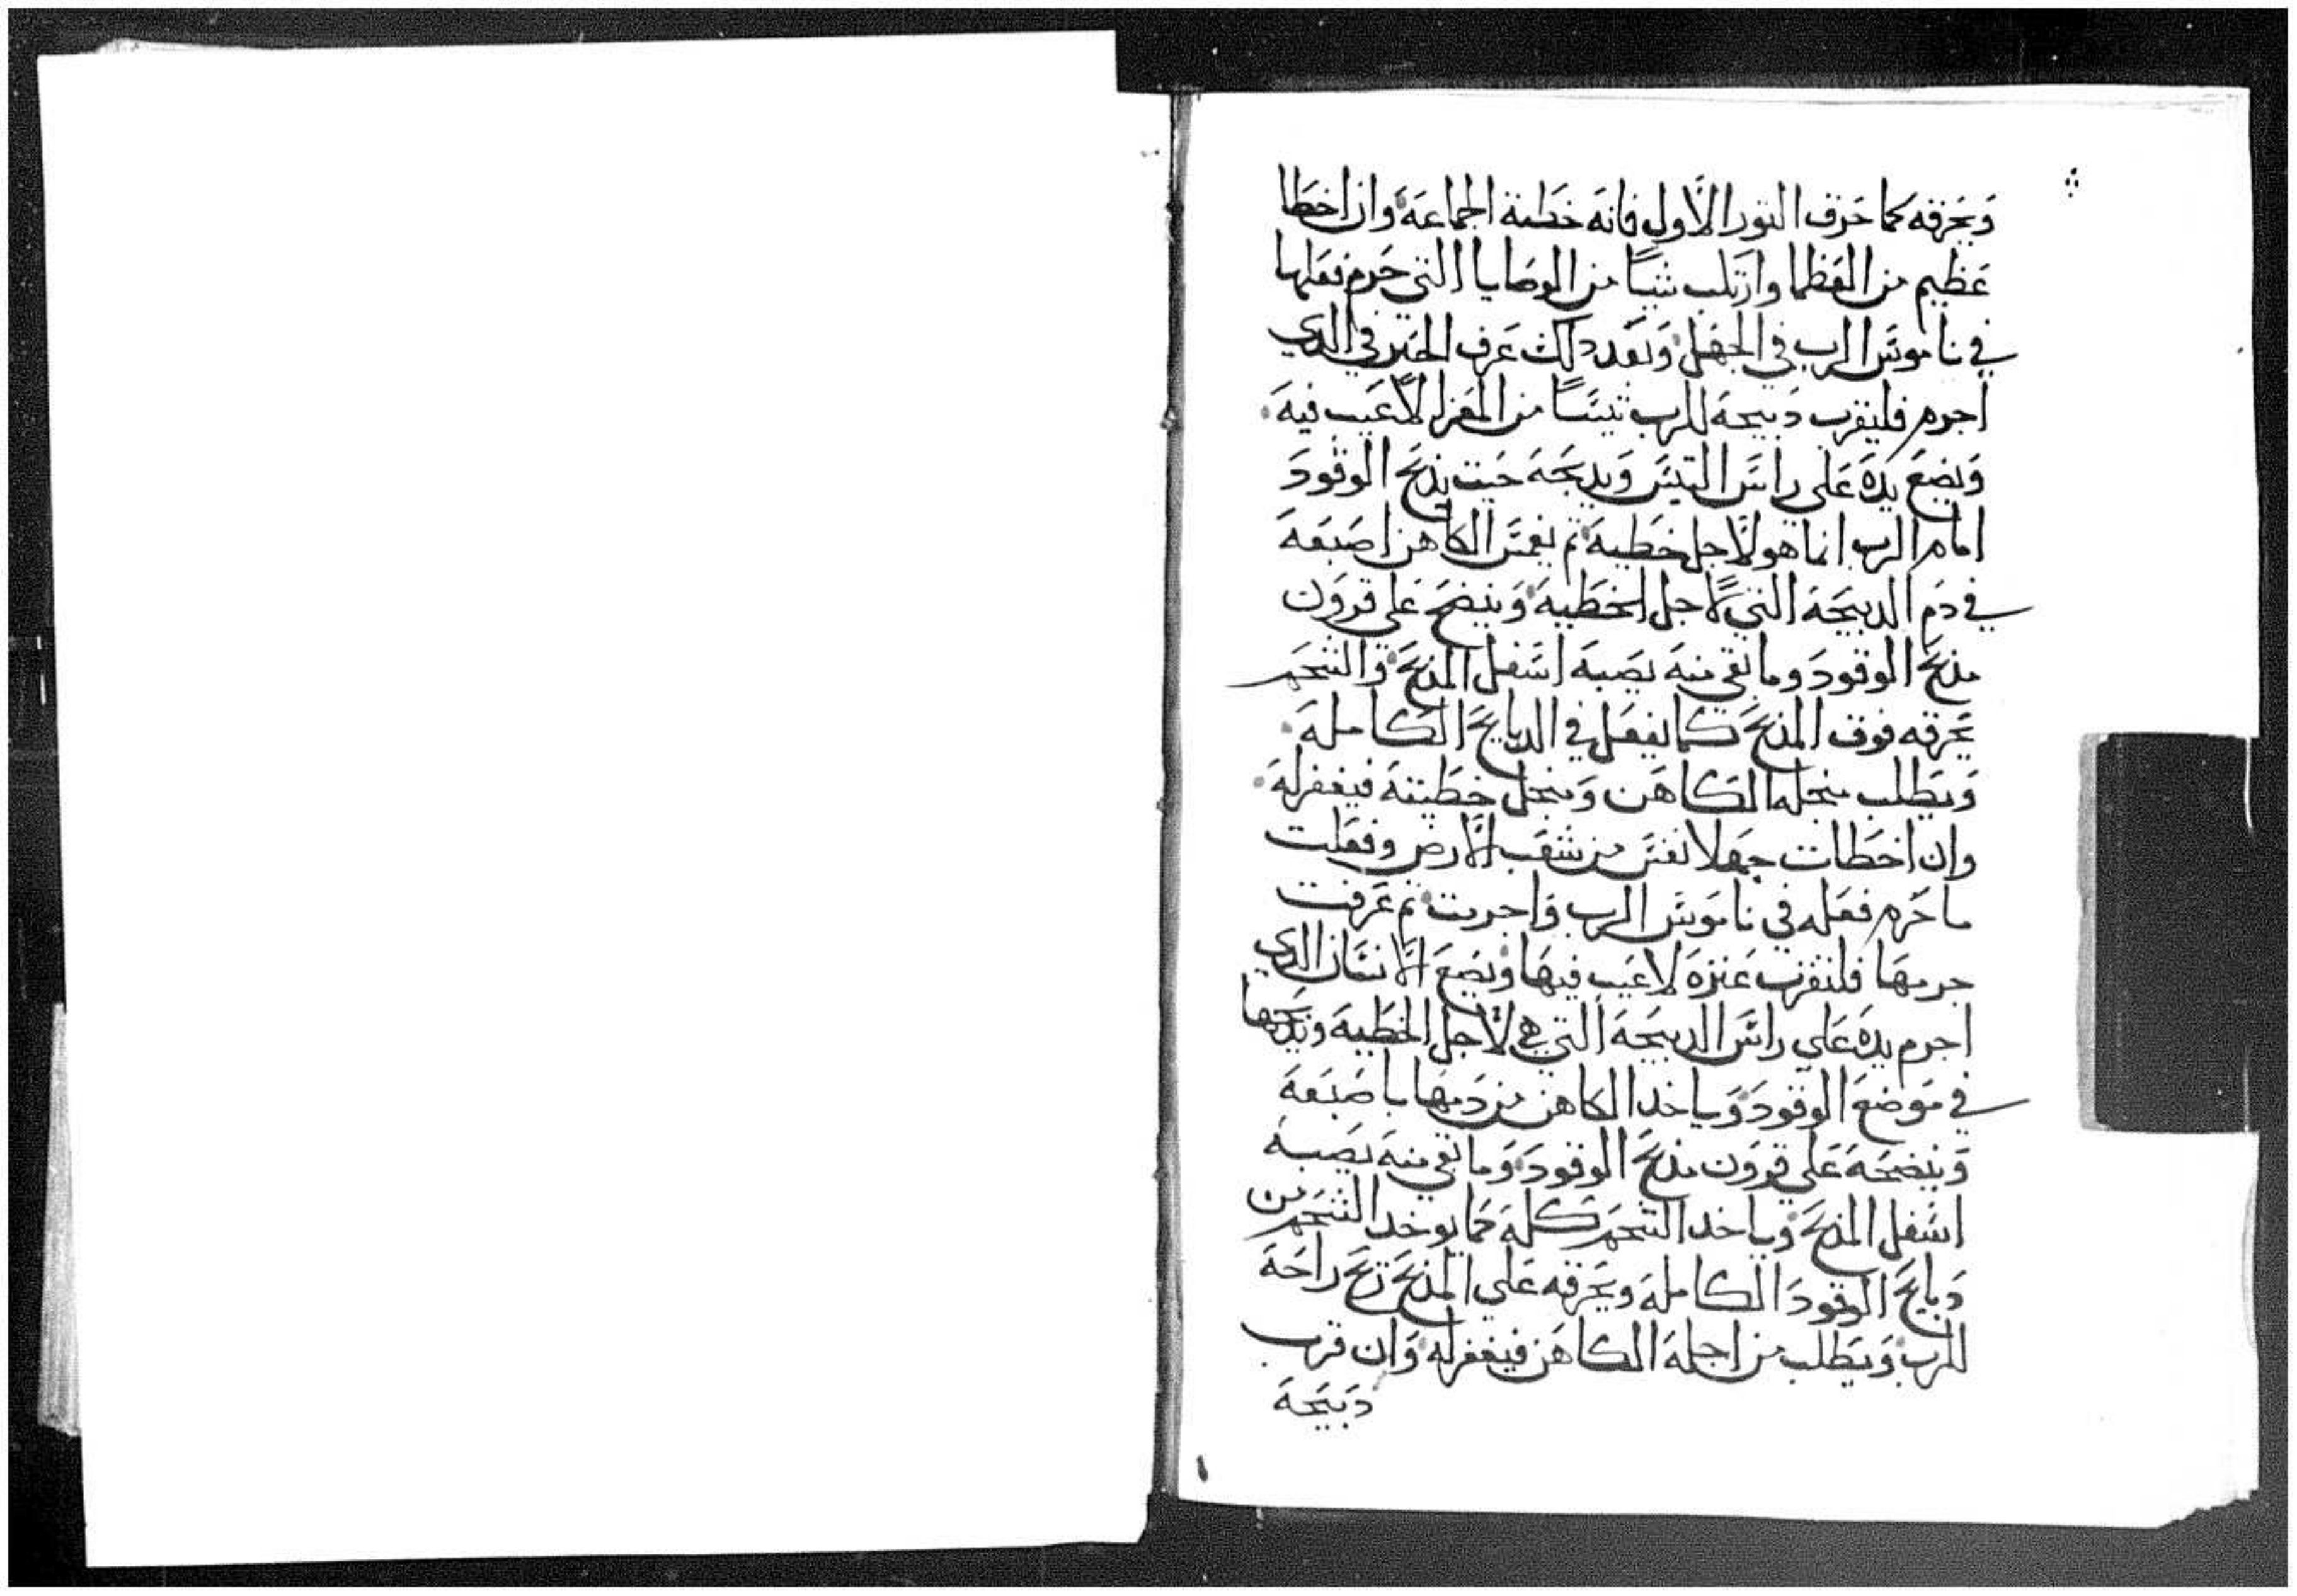 ويحرقه كما حرق التور الاول فانه خطية الجماعة وان اخطا
عظيم من العظما وارتكب شيا من الوصايا التي حرم فعلها
في ناموس الرب في الجهل وبعد دلك عرف الخبر في الدي
اجرم فليقرب دبيحة للرب تيسا من المعز لا عيب فيه
ويضع يده على راس التيس ويدبحه حيت يدبح الوقود
امام الرب انما هو لاجل خطيه تم يغمس الكاهن اصبعه
في دم الدبيحة التي لاجل الخطيه وينضح على قرون
مدبح الوقود وما بقي منه يصبه اسفل المدبح والشحم
يحرقه فوق المدبح كما يفعل في الدبايح الكامله
ويطلب منجله الكاهن ومنجل خطيته فيغفر له
وان اخطات جهلا نفس من شعب الارض وفعلت
ما حرم فعله في ناموس الرب واجرمت تم عرفت
جرمها فلتقرب عنزه لا عيب فيها ويضع الانسان الدي
اجرم يده علي راس الدبيحة التي هي لاجل الخطية ويدبحها
في موضع الوقود وياخد الكاهن من دمها باصبعه
وينضحه علي قرون مدبح الوقود وما بقي منه يصبه
اسفل المدبح وياخد الشحم كله كما يوخد الشحم من
دبايح الوقود الكامله ويحرقه علي المدبح ريح راحة
للرب ويطلب من اجله الكاهن فيغفر له وان قرب
دبيحة